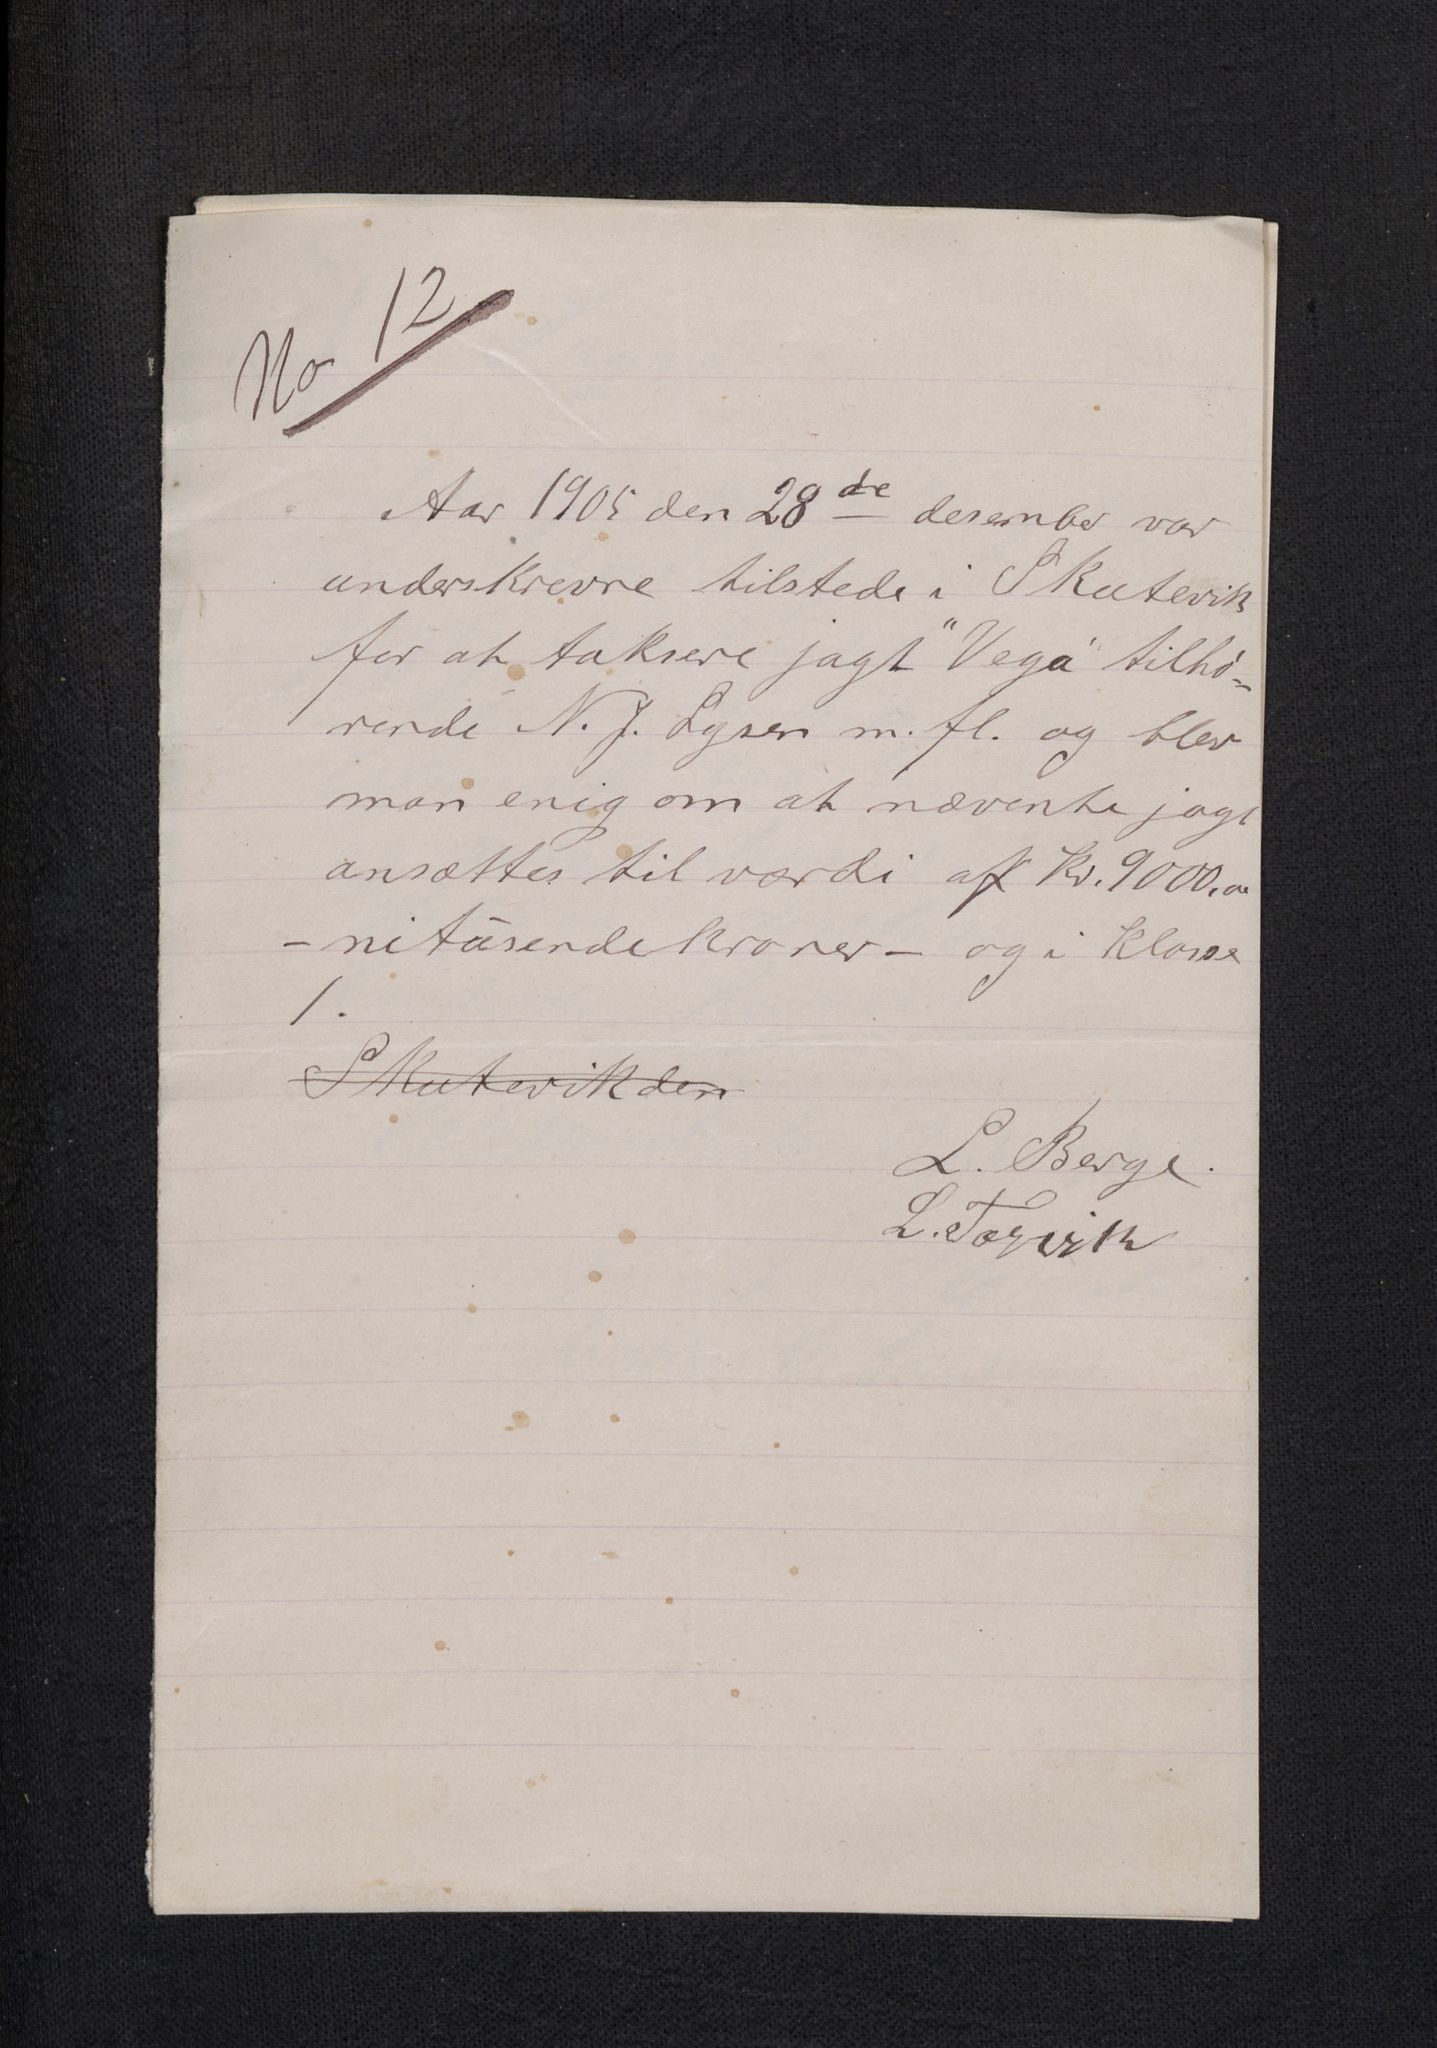 No 12
Aar 1905 den 28de desember var
underskrevne tilstede i Skutevik
for at taksere jagt "Vega" tilhø-
rende N. J. Lysen m. fl. og blev
man enig om at nævente jagt
ansættes til værdi af Kr. 9000,oo
- nitusende kroner - og i klasse
1.
Skutevik den
L. Berge.
L. Torvik